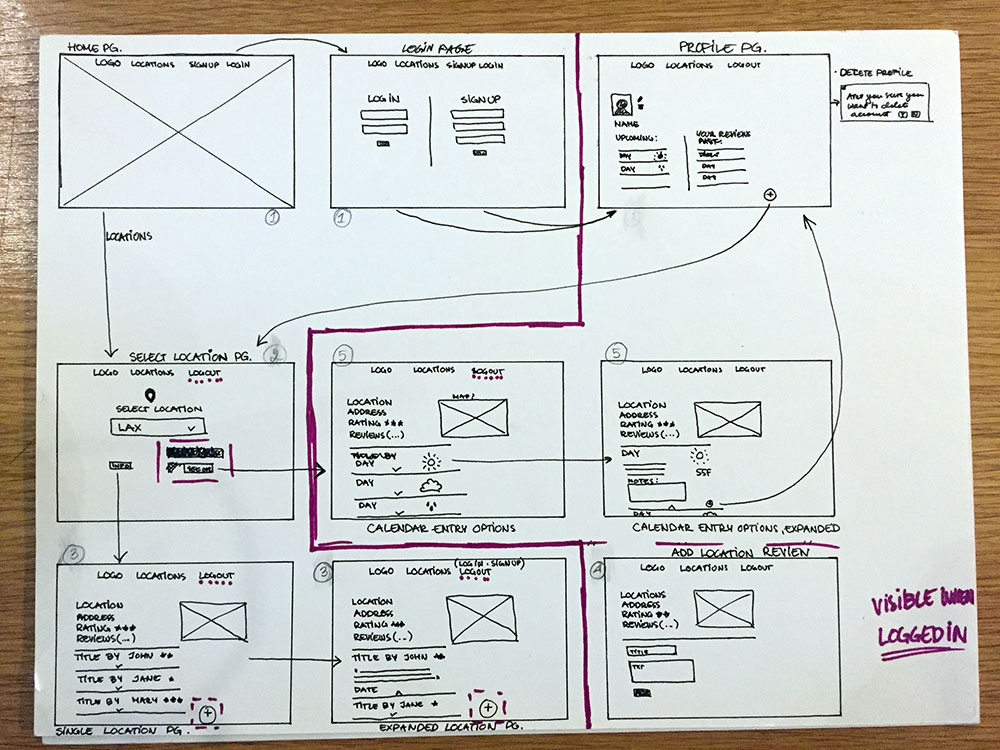 HOME PG.
LOGO LOCATIONS SIGNUP LOGIN
1
LOGIN PAGE
LOGO LOCATIONS SIGNUP LOGIN
LOGIN
SIGNUP
1
PROFILE PG.
LOGO LOCATIONS LOGOUT
NAME
UPCOMING:
DAY
DAY
YOUR REVIEWS
PAST:
DAY
DAY
+
· DELETE PROFILE
Are you sure you
want to delete
account Y N
LOCATIONS
SELECT LOCATION PG.
2
LOGO LOCATIONS LOGOUT
SELECT LOCATION
LAX
INFO
5
LOGO LOCATIONS LOGOUT
MAP?
LOCATION
ADDRESS
RATING ***
REVIEWS (...)
DAY
DAY
DAY
CALENDAR ENTRY OPTIONS
5
LOGO LOCATIONS LOGOUT
LOCATION
ADDRESS
RATING ***
REVIEWS (...)
DAY
55F
NOTES:
+
DAY
CALENDAR ENTRY OPTIONS, EXPANDED
3
LOGO LOCATIONS LOGOUT
LOCATION
ADDRESS
RATING ***
REVIEWS (...)
TITLE BY JOHN **
TITLE BY JANE *
TITLE BY MARY ***
+
SINGLE LOCATION PG.
3
(LOGIN · SIGNUP)
LOGO LOCATIONS LOGOUT
LOCATION
ADDRESS
RATING ***
REVIEWS (...)
TITLE BY JOHN **
DATE
TITLE BY JANE *
+
EXPANDED LOCATION PG.
ADD LOCATION REVIEW
4
LOGO LOCATIONS LOGOUT
LOCATIONS
ADDRESS
RATING **
REVIEWS (...)
TITLE
TXT
VISIBLE WHEN
LOGGED IN